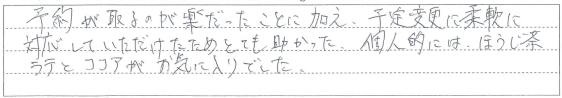 予約が取るのが楽だったことに加え、予定変更に柔軟に
対応していただけたためとても助かった。個人的には、ほうじ茶
ラテとココアがお気に入りでした。